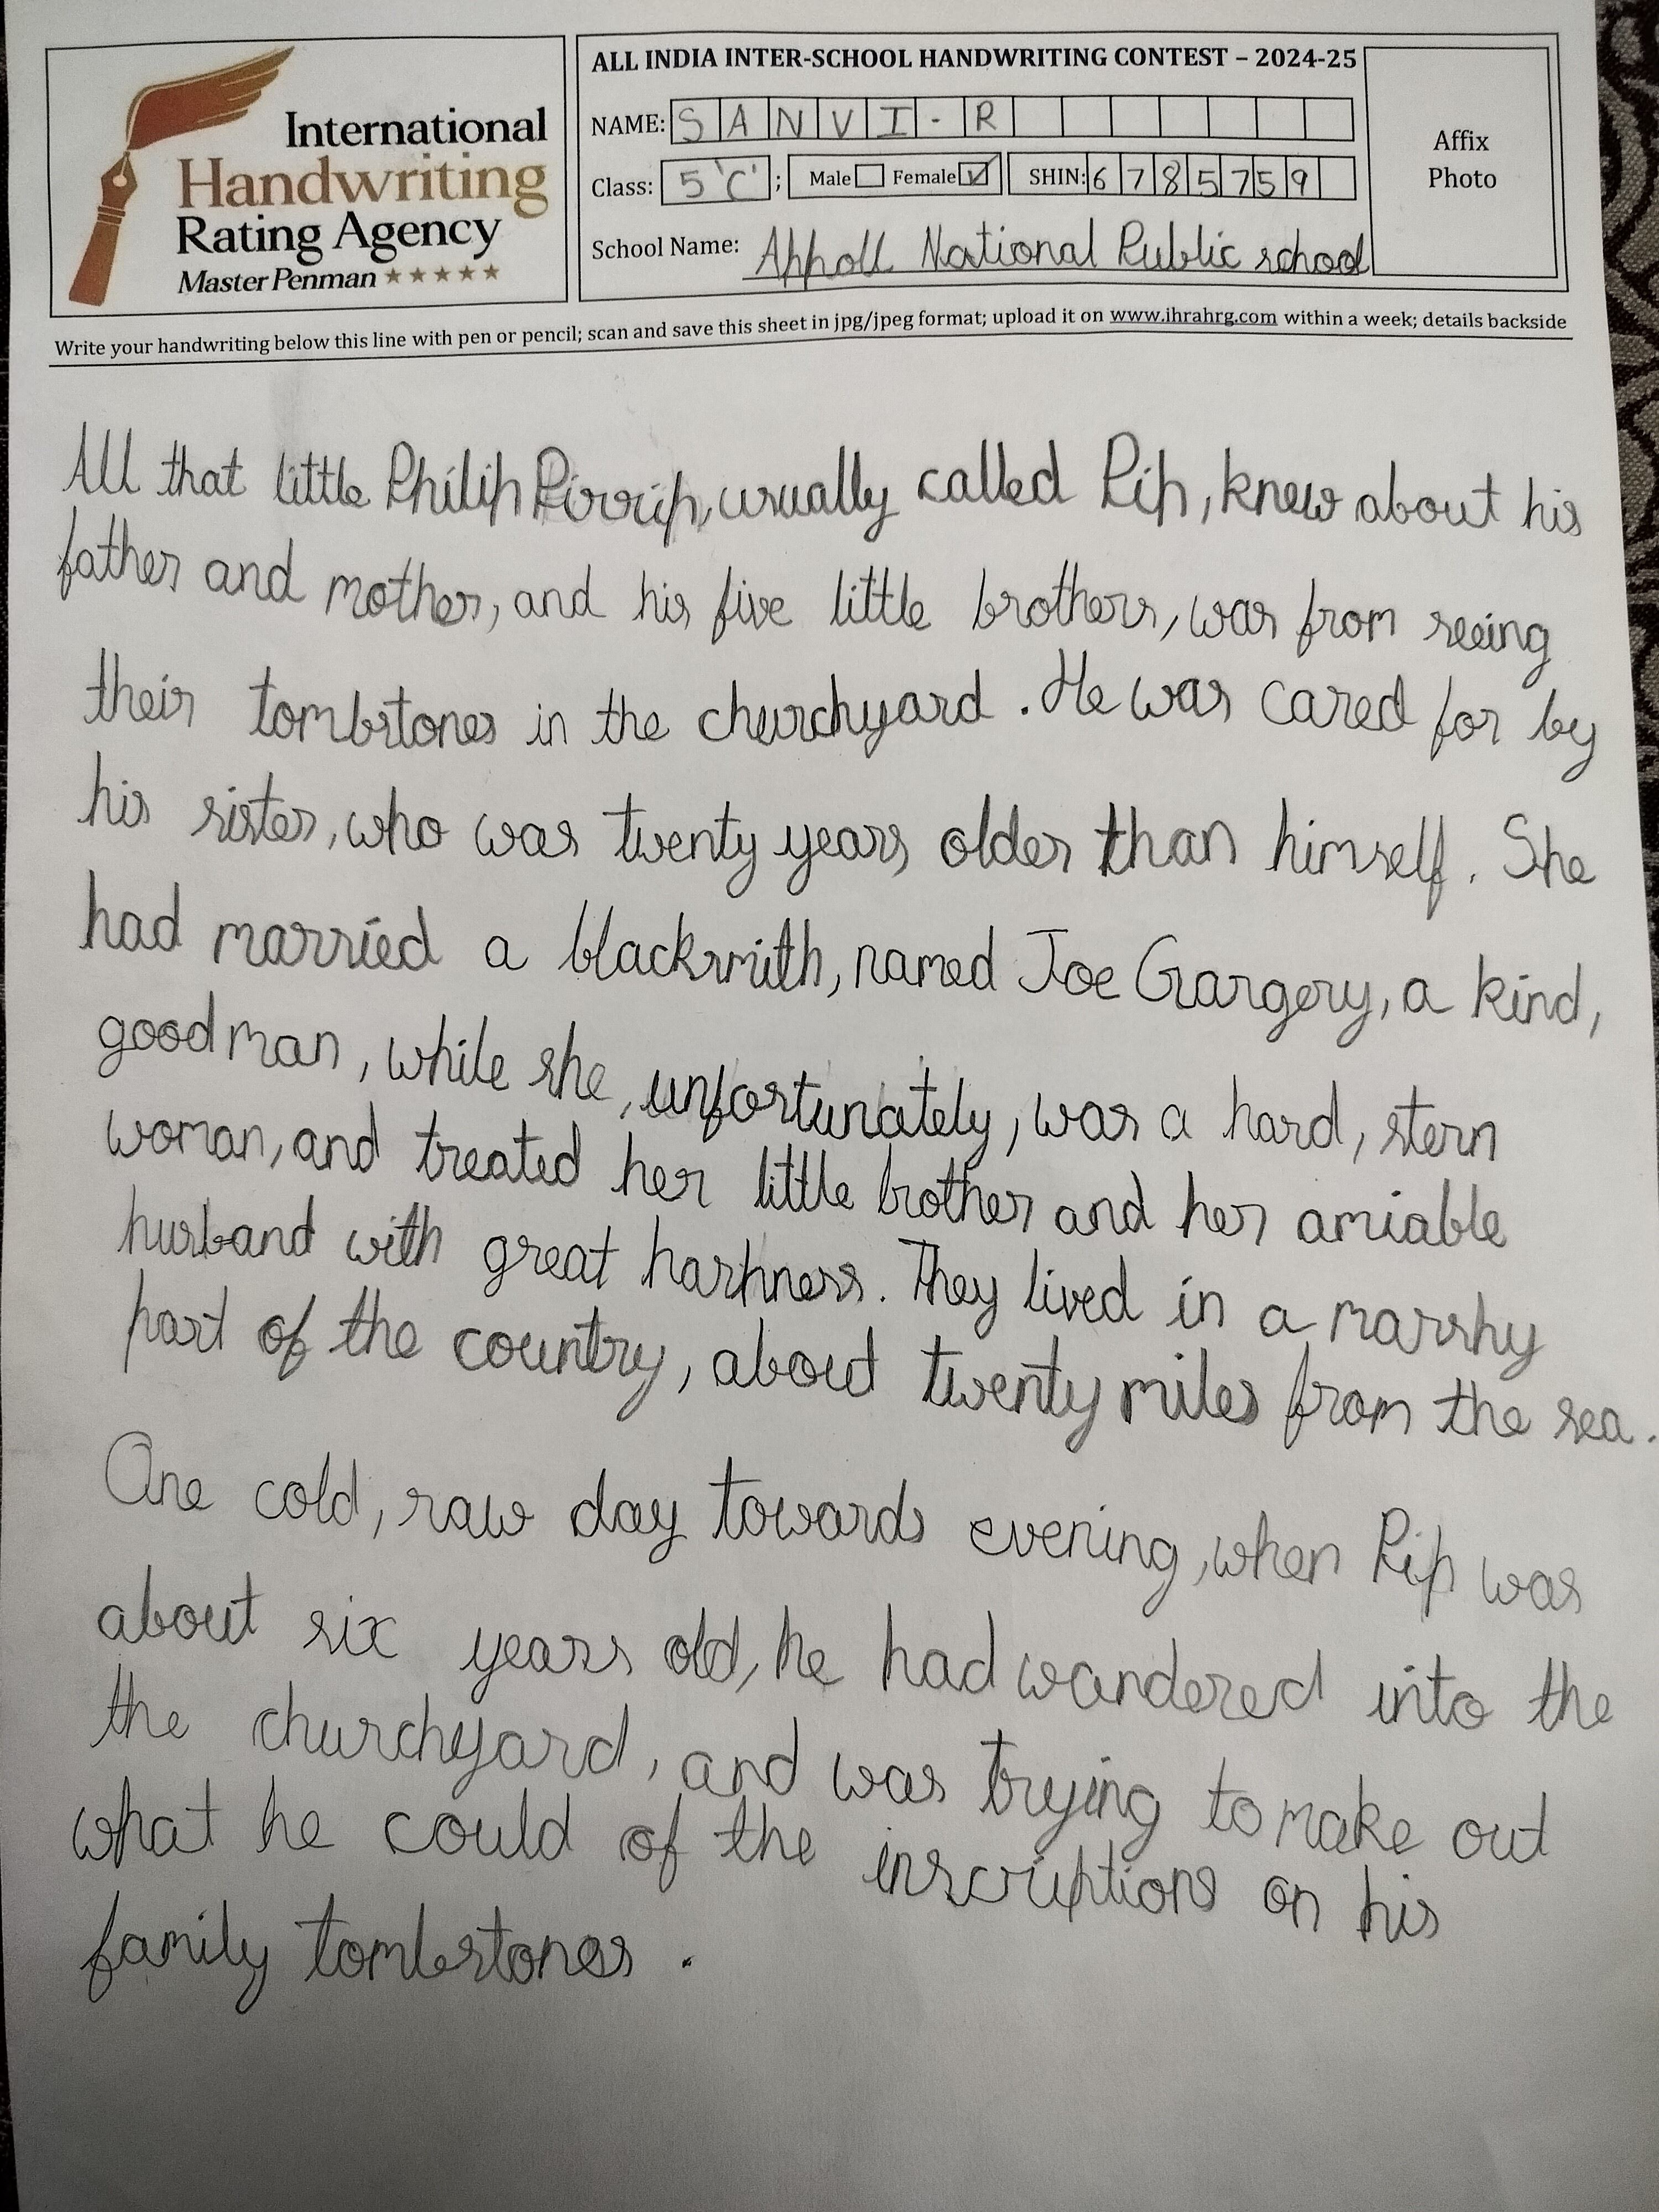 International
Handwriting
Rating Agency
Master Penman ★★★★★
ALL INDIA INTER-SCHOOL HANDWRITING CONTEST – 2024-25
NAME: SANVI-R
Class: 5 'C' ; Male Female ✓ SHIN: 6785759
School Name: Appoll National Public school
Affix
Photo
Write your handwriting below this line with pen or pencil; scan and save this sheet in jpg/jpeg format; upload it on www.ihrahrg.com within a week; details backside
All that little Philip Pirrip, usually called Pip, knew about his
father and mother, and his five little brothers, was from seeing
their tombstones in the churchyard. He was cared for by
his sister, who was twenty years older than himself. She
had married a blacksmith, named Joe Gargery, a kind,
good man, while she, unfortunately, was a hard, stern
woman, and treated her little brother and her amiable
husband with great harhness. They lived in a marshy
part of the country, about twenty miles from the sea.
One cold, raw day towards evening, when Pip was
about six years old, he had wandered into the
the churchyard, and was trying to make out
what he could of the inscriptions on his
family tombstones.